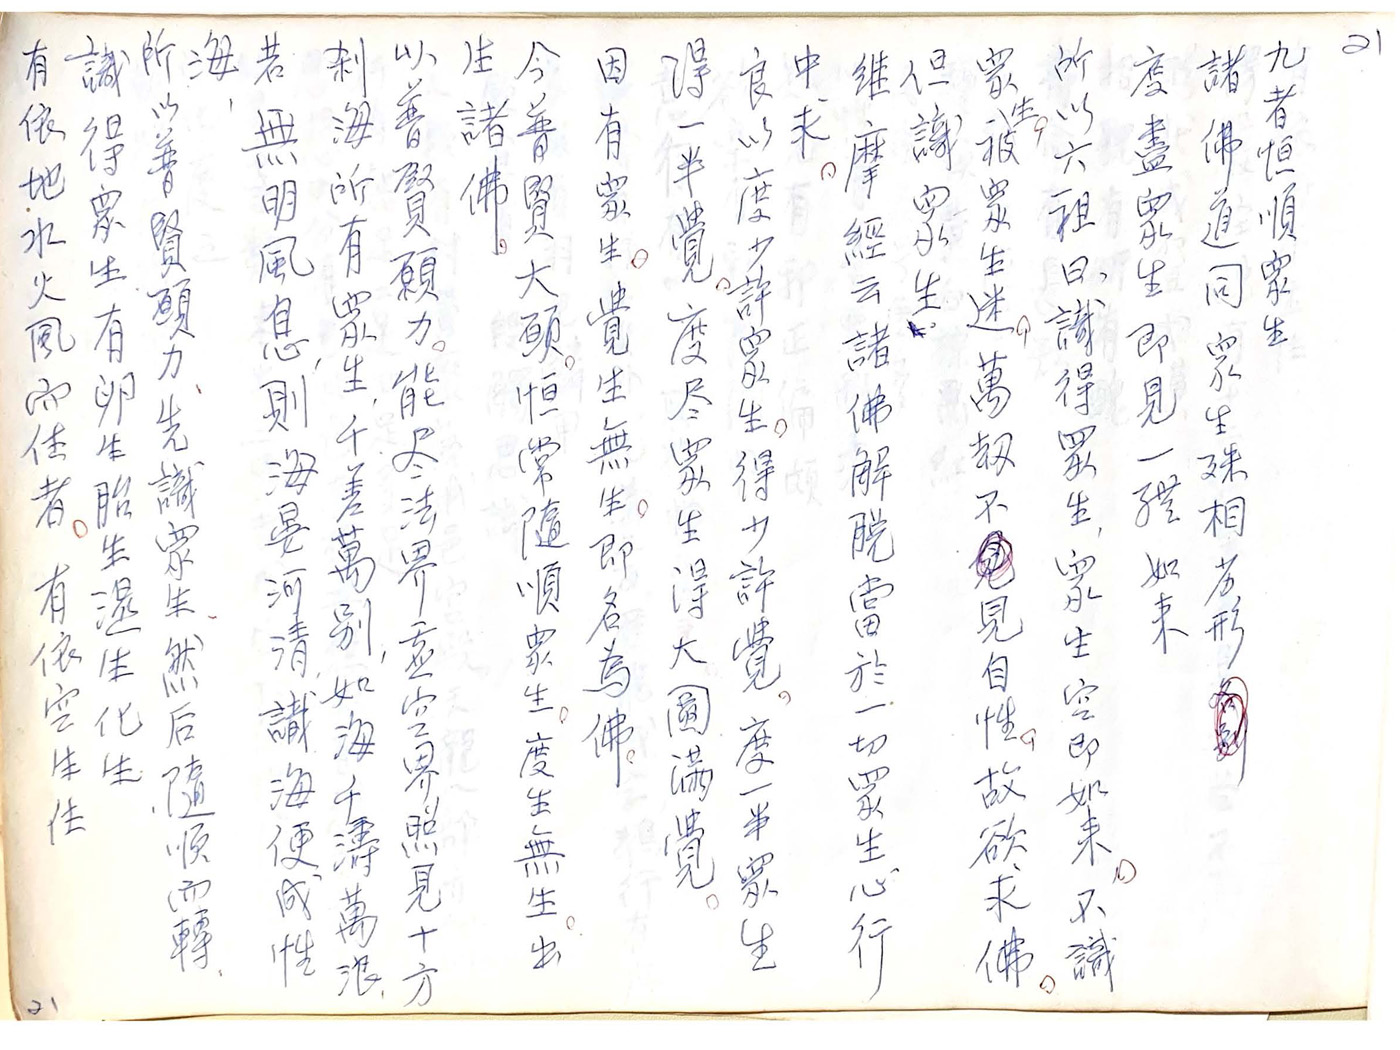 21
九者恒順眾生
諸佛道同眾生殊相芳形
度盡眾生即見一體如來
所以六祖曰、識得眾生,眾生空即如來。不識
眾生。被眾生迷。萬劫不見自性。故欲求佛。
但識眾生
維摩經云諸佛解脱當於一切眾生心行
中求。
良以度少許眾生。得少許覺。度一半眾生
得一半覺。度尽眾生得大圓滿覺。
因有眾生。覺生無生。即名為佛。
今普賢大願。恒常隨順眾生。度生無生。出
生諸佛。
以普賢願力。能尽法界盡空界照見十方
剎海所有眾生,千差萬別,如海千濤萬浪,
若無明風息,則海晏河清,識海便成性
海,
所以普賢願力、先識眾生、然后隨順而轉、
識得眾生有卵生胎生濕生化生
有依地水火風而住者。有依空生住
21